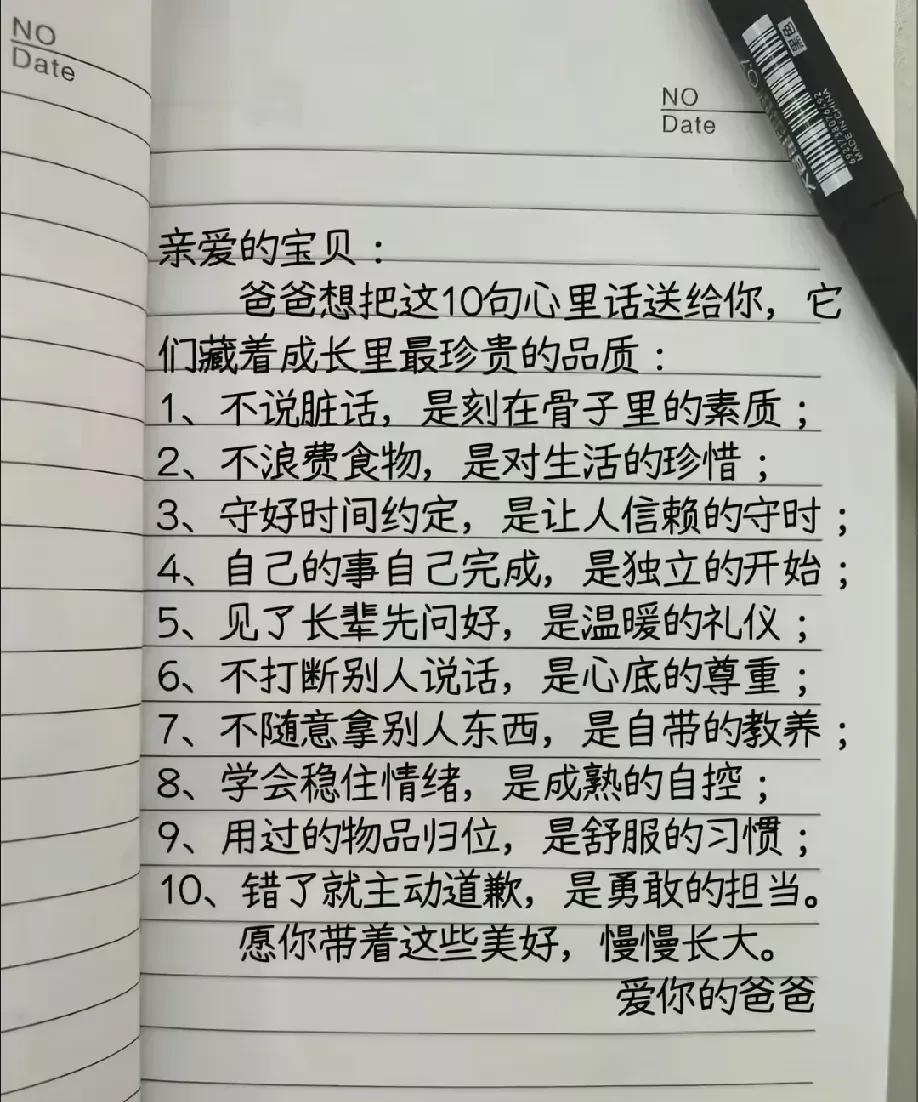 NO
Date
NO
Date
6921738076492
MADE IN CHINA
亲爱的宝贝：
爸爸想把这10句心里话送给你，它
们藏着成长里最珍贵的品质：
1、不说脏话，是刻在骨子里的素质；
2、不浪费食物，是对生活的珍惜；
3、守好时间约定，是让人信赖的守时；
4、自己的事自己完成，是独立的开始；
5、见了长辈先问好，是温暖的礼仪；
6、不打断别人说话，是心底的尊重；
7、不随意拿别人东西，是自带的教养；
8、学会稳住情绪，是成熟的自控；
9、用过的物品归位，是舒服的习惯；
10、错了就主动道歉，是勇敢的担当。
愿你带着这些美好，慢慢长大。
爱你的爸爸